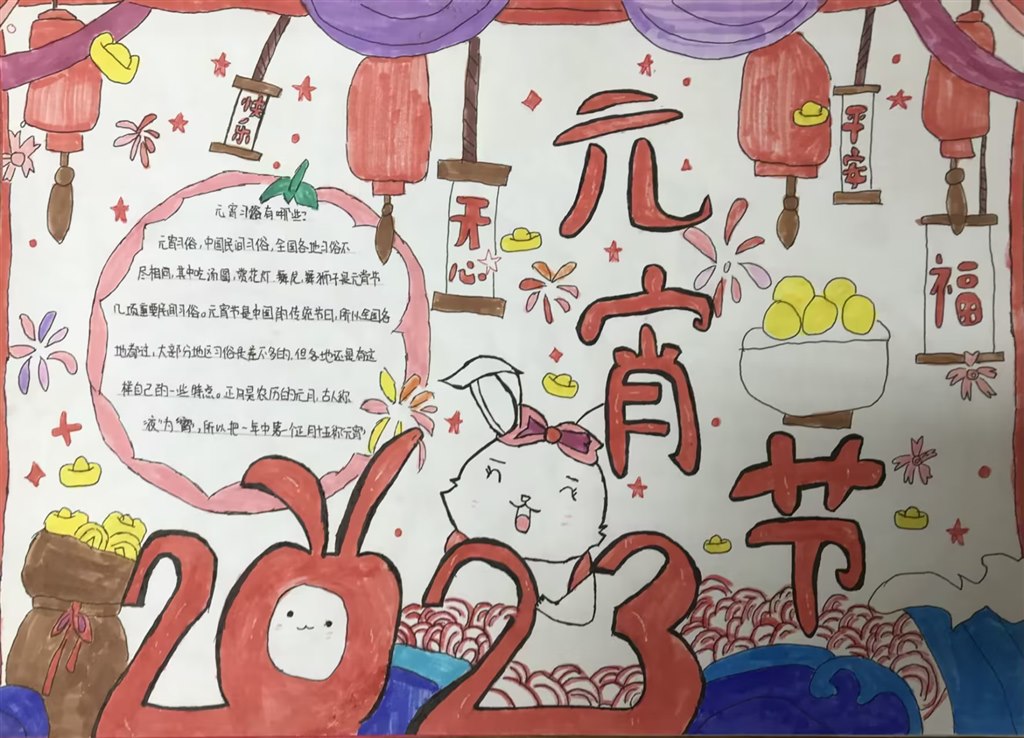 快乐
开心
平安
福
元宵节
元宵习俗有哪些?
元宵习俗,中国民间习俗,全国各地习俗不
尽相同,其中吃汤圆,赏花灯、舞龙,舞狮子是元宵节
几项重要民间习俗。元宵节是中国的传统节日,所以全国各
地都过,大部分地区习俗是差不多的,但各地还是有这
样自己的一些特点。正月是农历的元月,古人称
"夜"为"宵",所以把一年中第一个正月十五称元宵
2023